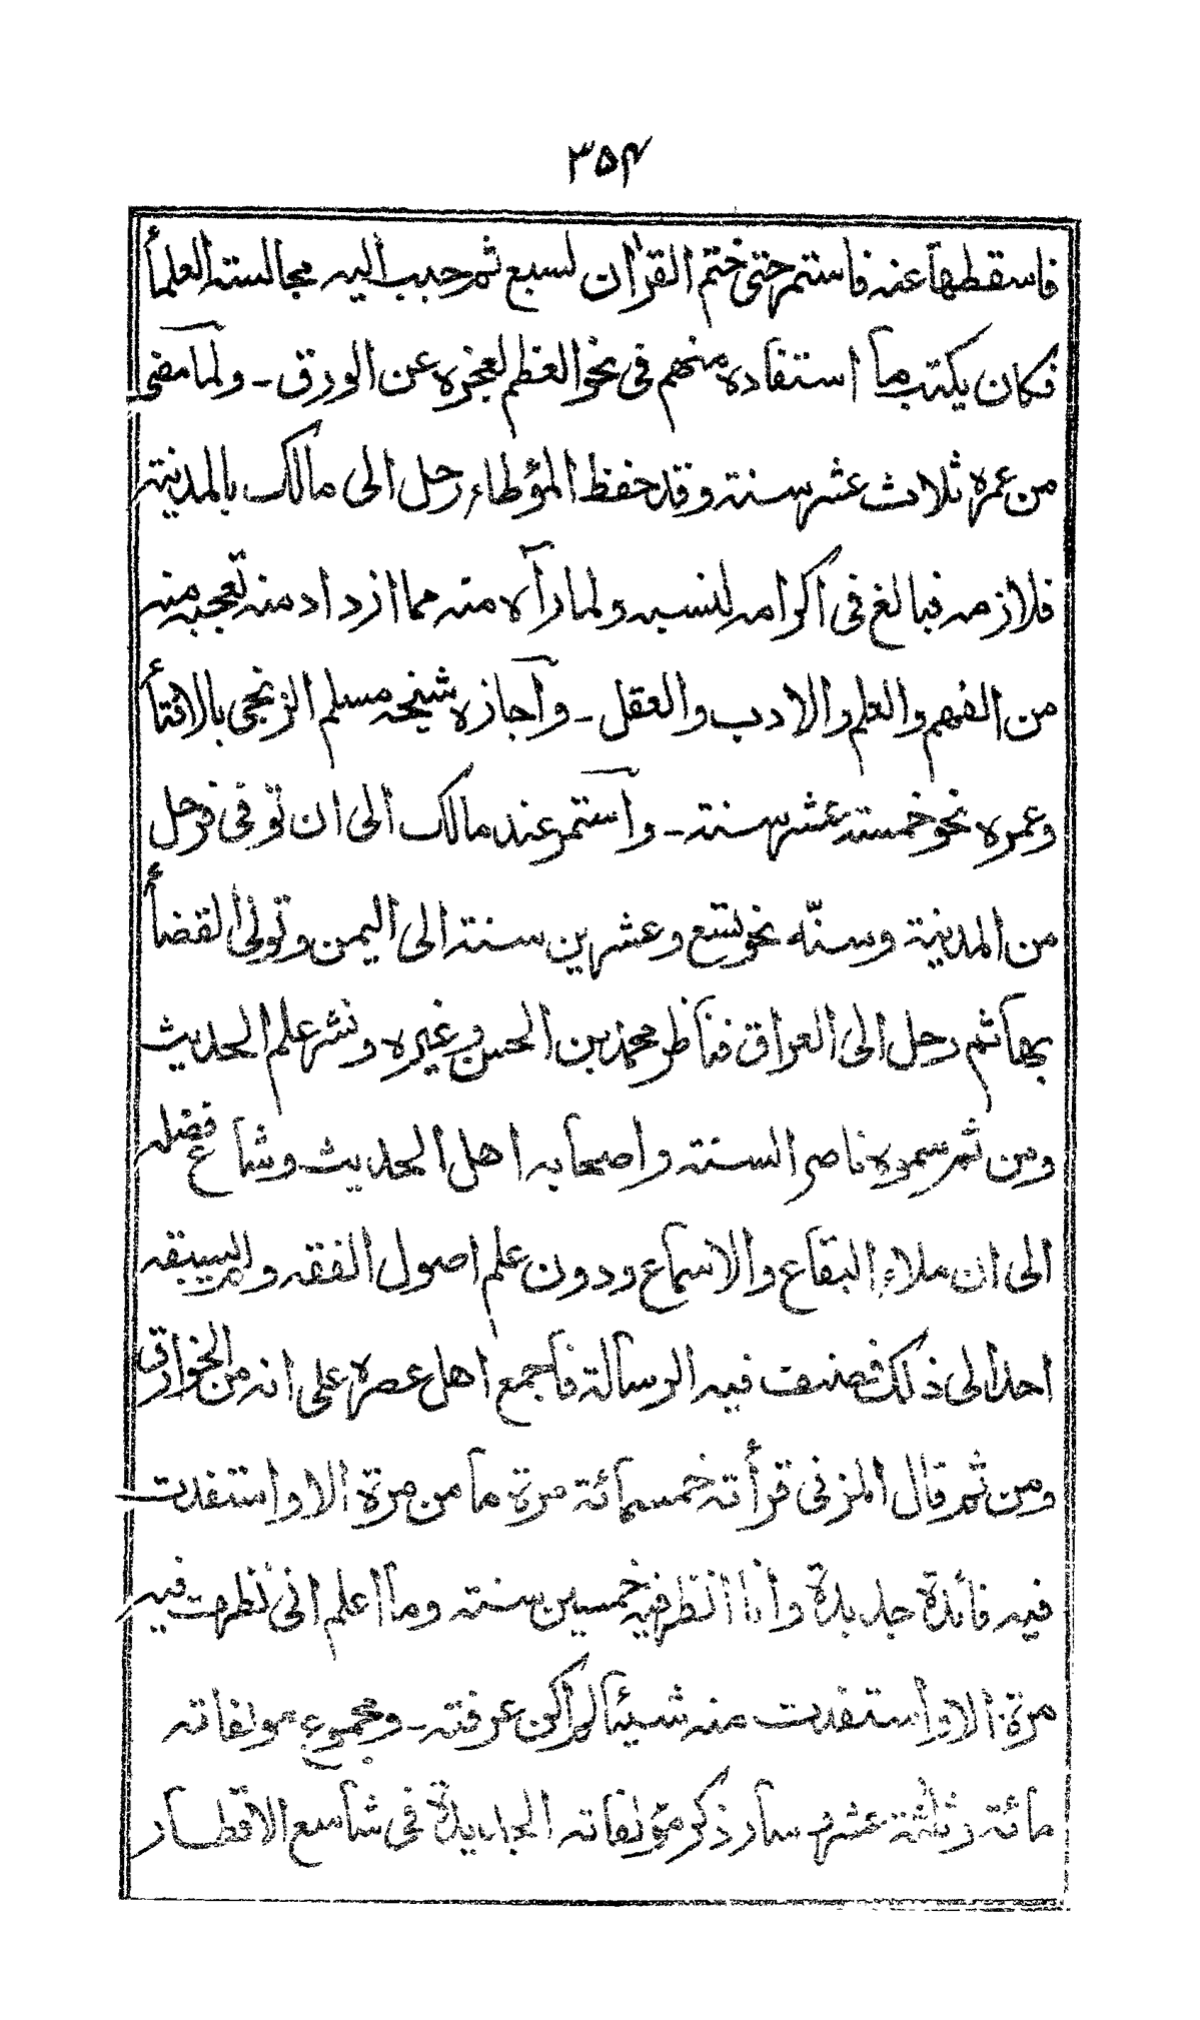 ٣٥٤
فاسقطها عنه فاستمر حتى ختم القرآن لسبع ثم حبب اليه مجالسة العلمأ
فكان يكتب ما استفاده منهم في نحو العظم لعجزه عن الورق ـ ولما مضى
من عمره ثلاث عشر سنة وقد حفظ المؤطاء رحل الى مالك بالمدينة
فلازمه فبالغ في اكرامه لنسبه ولما رآه منه مما ازداد منه تعجبه منه
من الفهم والعلم والادب والعقل ـ وآجازه شيخه مسلم الزنجي بالافتأ
وعمره نحو خمسة عشر سنة ـ وآستمر عند مالك الى ان توفي فرحل
من المدينة وسنّه نحو تسع وعشرين سنة الى اليمن وتولى القضأ
بها ثم رحل الى العراق فناظر محمد بن الحسن وغيره ونشر علم الحديث
ومن ثم سموه ناصر السنة واصحابه اهل الحديث وشاع فضله
الى ان ملاء البقاع والاسماع ودون علم اصول الفقه ولم يسبقه
احد الى ذلك فصنف فيه الرسالة فاجمع اهل عصره على انه من الخوارق
ومن ثم قال المزنى قرأته خمسمائة مرة ما من مرة الا واستفدت
فيه فائدة جديدة وانا انظر فيه خمسين سنة وما اعلم انى نظرت فيه
مرة الا واستفدت منه شيئا لم اكن عرفته ـ ومجموع مولفاته
مائة وثلثة عشر سار ذكر مؤلفاته الجديدة في شاسع الاقطار